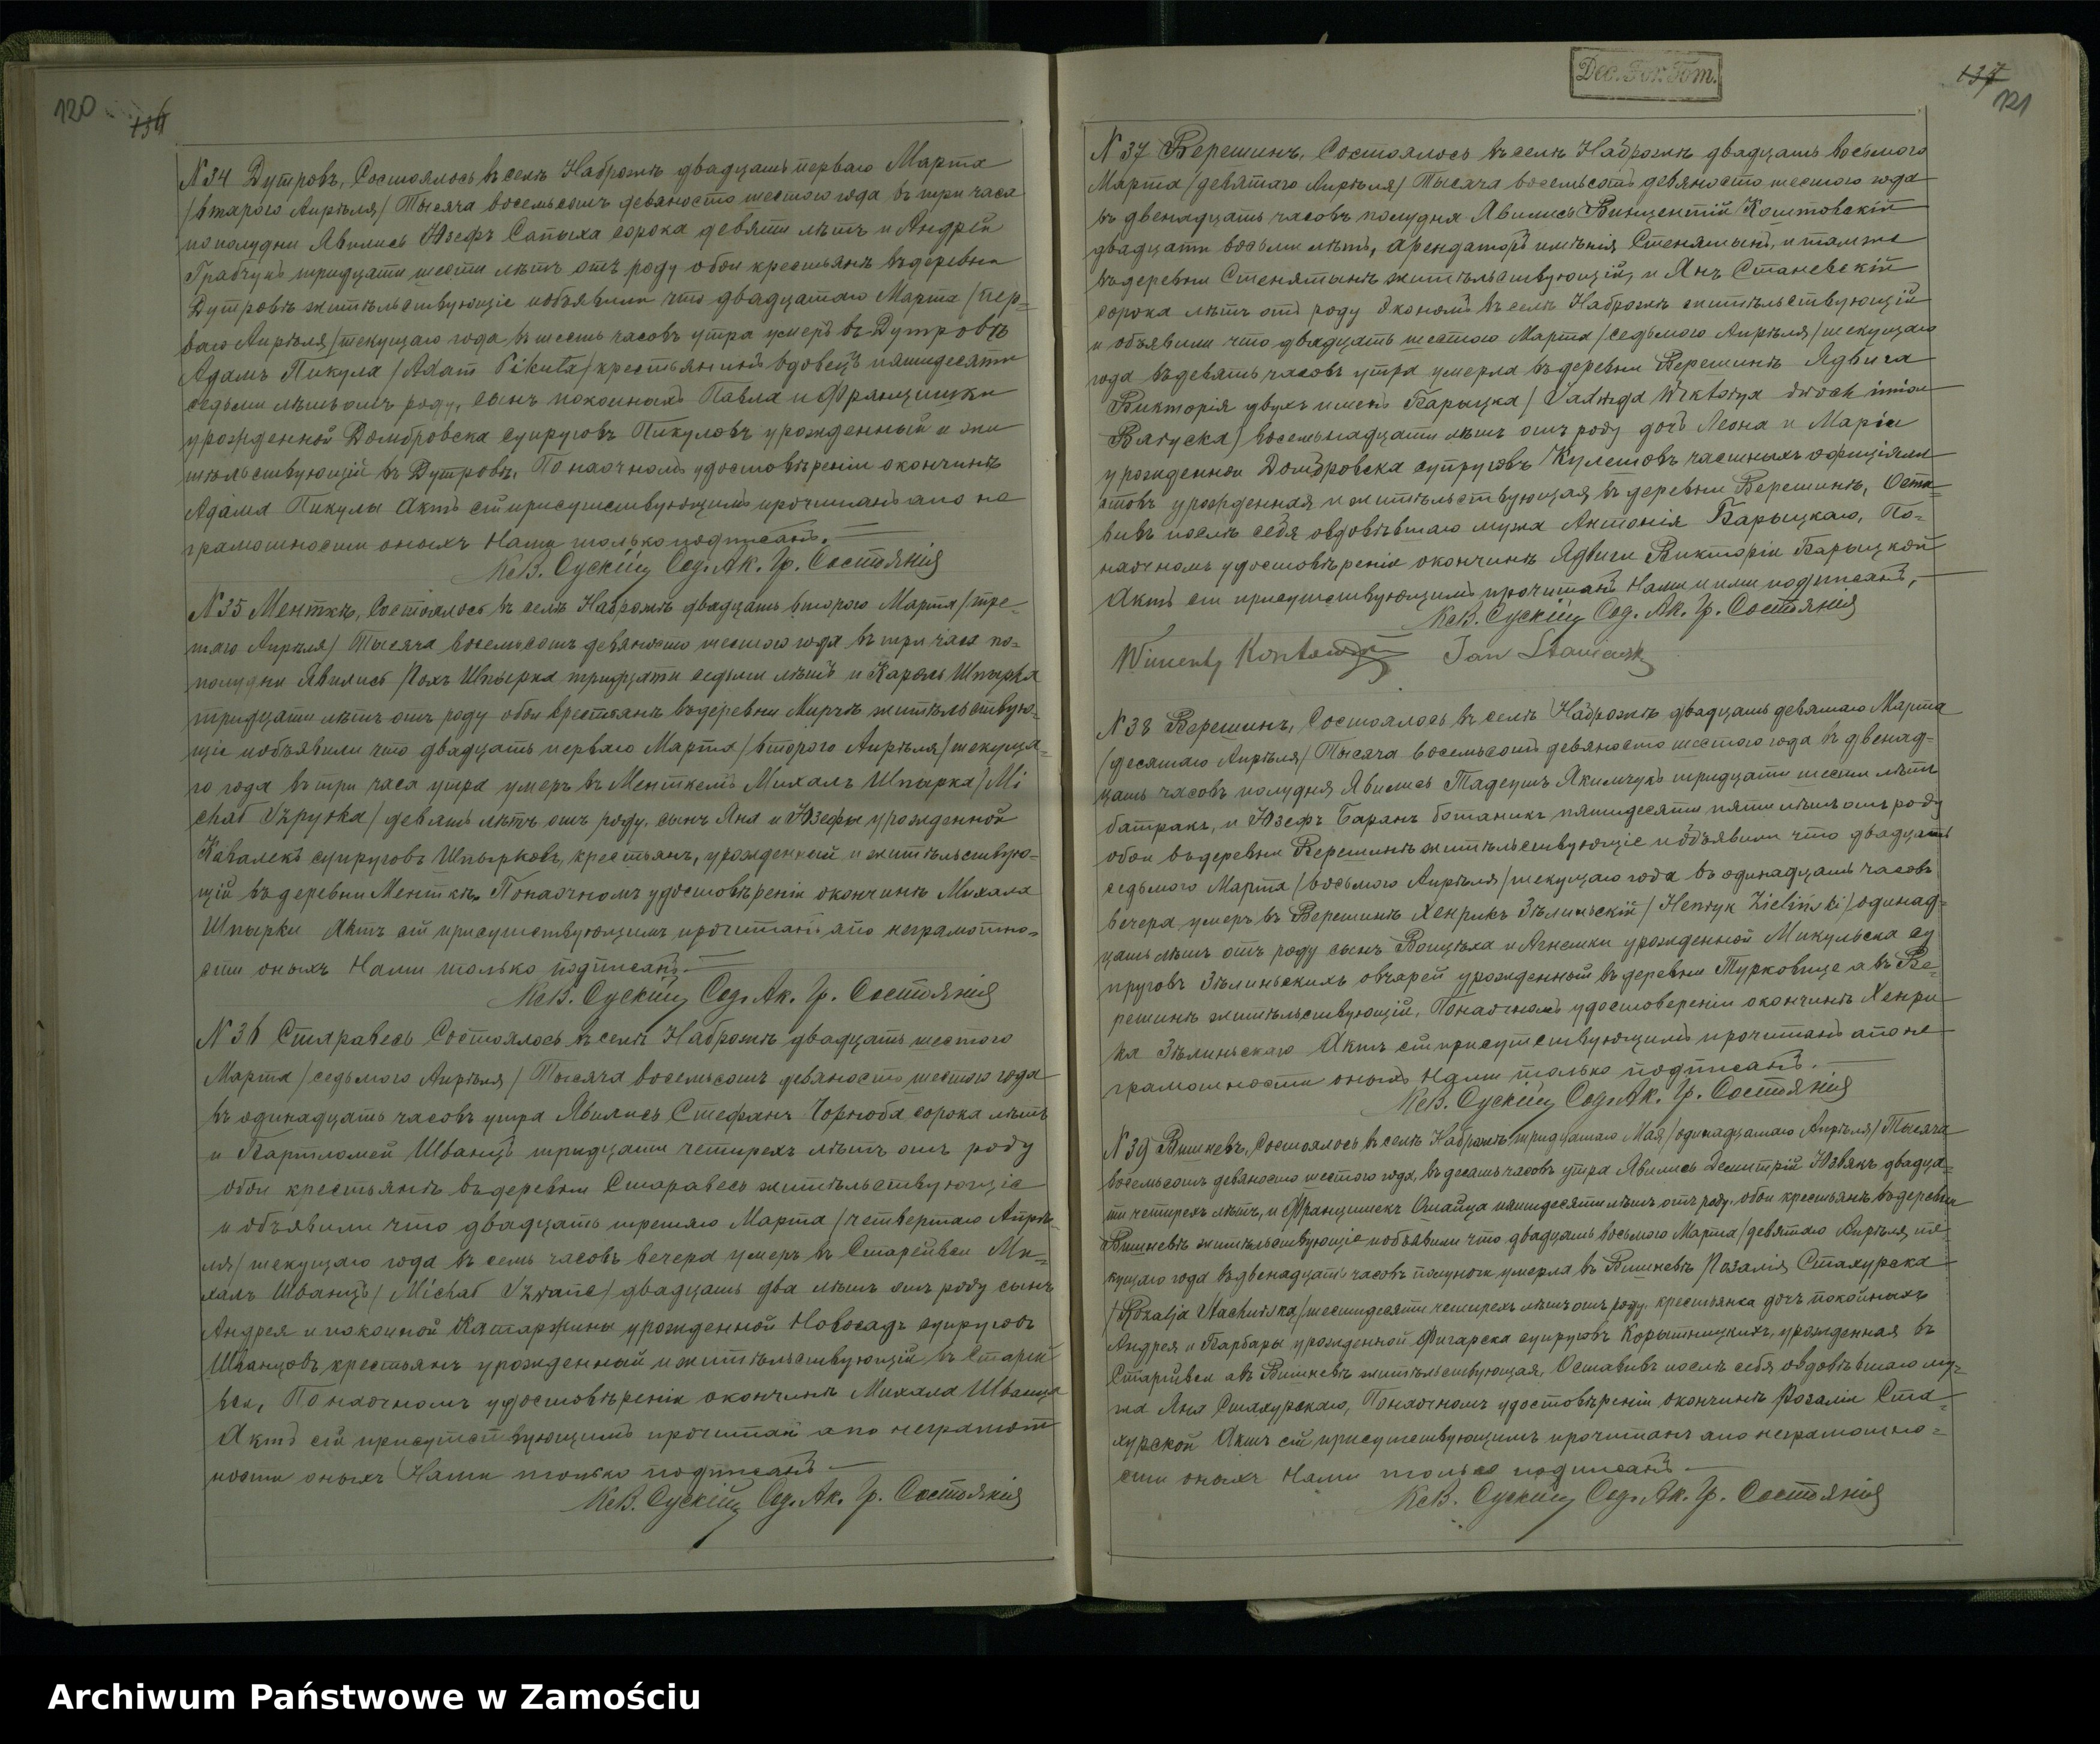 120
134
№ 34 Дутровъ, Состоялось въ селѣ Наброжѣ двадцать перваго Марта
/втораго Апрѣля/ Тысяча восемьсотъ девяносто шестого года въ три часа
пополудни Явились Юзефъ Сапыха сорока девяти лѣтъ и Андрей
Грабчукъ тридцати шести лѣтъ отъ роду обои крестьянѣ въ деревни
Дутровѣ жительствующіе и объявили что двадцатаго Марта /пер-
ваго Апрѣля/ текущаго года въ шесть часовъ утра умеръ въ Дутровѣ
Адамъ Пикула /Adam Pikuła/ крестьянинъ вдовецъ пятидесяти
седьми лѣтъ отъ роду, сынъ покойныхъ Павла и Францишки
урожденной Домбровска супруговъ Пикуловъ урожденный и жи
тельствующій въ Дутровѣ, По наочномъ удостовѣреніи окончинѣ
Адама Пикулы Актъ сей присутствующимъ прочитанъ а по не
грамотности оныхъ Нами только подписанъ.
Кс. В. Суский Сод. Ак. Гр. Состоянія
№ 35 Менткѣ, Состоялось въ селѣ Наброжѣ двадцать второго Марта /тре-
таго Апрѣля/ Тысяча восемьсотъ девяносто шестого года въ три часа по-
полудни Явились Рохъ Шпырка тридцати седьми лѣтъ и Кароль Шпырка
тридцати лѣтъ отъ роду обои крестьянѣ въ деревни Мирчѣ жительствую-
щіе и объявили что двадцать перваго Марта /второго Апрѣля/ текуща-
го года въ три часа утра умеръ въ Менткемъ Михалъ Шпырка /Mi
chał Szpyrka/ девять лѣтъ отъ роду, сынъ Яна и Юзефы урожденной
Ковалекъ супруговъ Шпырковъ, крестьянъ, урожденный и жительствую-
щій въ деревни Менткѣ. По наочномъ удостовѣреніи окончинѣ Михала
Шпырки Актъ сей присутствующимъ прочитанъ а по неграмотно-
сти оныхъ Нами только подписанъ.
Кс. В. Суский Сод. Ак. Гр. Состоянія
№ 36 Старавесь Состоялось въ селѣ Наброжѣ двадцать шестого
Марта /седьмого Апрѣля/ Тысяча восемьсотъ девяносто шестого года
въ одинадцать часовъ утра Явились Стефанъ Чорнюба сорока лѣтъ
и Бартломей Шванцъ тридцати четырехъ лѣтъ отъ роду
обои крестьянѣ въ деревни Старавесь жительствующіе
и объявили что двадцать третяго Марта /четвертаго Апрѣ-
ля/ текущаго года въ семь часовъ вечера умеръ въ Старейвси Ми-
халъ Шванцъ /Michał Szwanc/ двадцать два лѣтъ отъ роду сынъ
Андрея и покойной Катаржины урожденной Новосадъ супруговъ
Шванцовъ, крестьянъ урожденный и жительствующій въ Старей
вси, По наочномъ удостовѣреніи окончинѣ Михала Шванца
Актъ сей присутствующимъ прочитанъ а по неграмот
ности оныхъ Нами только подписанъ
Кс. В. Суский Сод. Ак. Гр. Состоянія
137
121
№ 37 Верешинъ, Состоялось въ селѣ Наброжѣ двадцать восьмого
Марта /девятаго Апрѣля/ Тысяча восемьсотъ девяносто шестого года
въ двенадцать часовъ полудня Явились Винцентій Контовскій
двадцати восьми лѣтъ, арендаторъ имѣнія Стенятынъ, и тамже
въ деревни Стенятынѣ жительствующій, и Янъ Станевскій
сорока лѣтъ отъ роду Экономъ въ селѣ Наброжѣ жительствующій
и объявили что двадцать шестого Марта /седьмого Апрѣля/ текущаго
года въ девять часовъ утра умерла въ деревни Верешинѣ Ядвига
Викторія двухъ именъ Барыцка /Jadwiga Wiktorya dwoch imion
Barycka/ восемьнадцати лѣтъ отъ роду дочь Леона и Маріи
урожденной Домбровска супруговъ Кулешовъ частныхъ офиціали
стовъ урожденная и жительствующая въ деревни Верешинѣ, Оста-
вивъ послѣ себя овдовѣвшаго мужа Антонія Барыцкаго, По-
наочномъ удостовѣреніи окончинѣ Ядвиги Викторіи Барыцкой
Актъ сей присутствующимъ прочитанъ Нами и ими подписанъ,
Кс. В. Суский Сод. Ак. Гр. Состоянія
Wincenty Kontowski Jan Staniewski
№ 38 Верешинъ, Состоялось въ селѣ Наброжѣ двадцать девятаго Марта
/десятаго Апрѣля/ Тысяча восемьсотъ девяносто шестого года въ двенад-
цать часовъ полудня Явились Тадеушъ Якимчукъ тридцати шести лѣтъ
батракъ, и Юзефъ Баранъ ботаникъ пятидесяти пяти лѣтъ отъ роду
обои въ деревни Верешинѣ жительствующіе и объявили что двадцать
седьмого Марта /восьмого Апрѣля/ текущаго года въ одинадцать часовъ
вечера умеръ въ Верешинѣ Хенрикъ Зѣлиньскій /Henryk Zieliński/ одинад-
цать лѣтъ отъ роду сынъ Войцѣха и Агнешки урожденной Микульска су
пруговъ Зѣлиньскихъ овчарей урожденный въ деревни Турковице а въ Ве-
решинѣ жительствующій, По наочномъ удостовереніи окончинѣ Хенри
ка Зѣлиньскаго Актъ сей присутствующимъ прочитанъ а по не
грамотности оныхъ Нами только подписанъ.
Кс. В. Суский Сод. Ак. Гр. Состоянія
№ 39 Вишневъ, Состоялось въ селѣ Наброжѣ тридцатаго Мая /одинадцатаго Апрѣля/ Тысяча
восемьсотъ девяносто шестого года, въ десять часовъ утра Явились Демитрій Юзвякъ двадца-
ти четырехъ лѣтъ, и Францишекъ пятидесяти лѣтъ отъ роду, обои крестьянѣ въ деревни
Вишневѣ жительствующіе и объявили что двадцать восьмого Марта /девятаго Апрѣля, те-
кущаго года въ двенадцать часовъ полуночи умерла въ Вишневѣ Розалія Стахурска
/Rozalja Stachurska/ шестидесяти четырехъ лѣтъ отъ роду, крестьянка дочь покойныхъ
Андрея и Барбары урожденной Фигарска супруговъ Корытницкихъ, урожденная въ
Старейвси а въ Вишневѣ жительствующая, Оставивъ послѣ себя овдовѣвшаго му-
жа Яна Стахурскаго, По наочномъ удостовѣреніи окончинѣ Розаліи Ста-
хурской Актъ сей присутствующимъ прочитанъ а по неграмотно-
сти оныхъ Нами только подписанъ
Кс. В. Суский Сод. Ак. Гр. Состоянія
Archiwum Państwowe w Zamościu